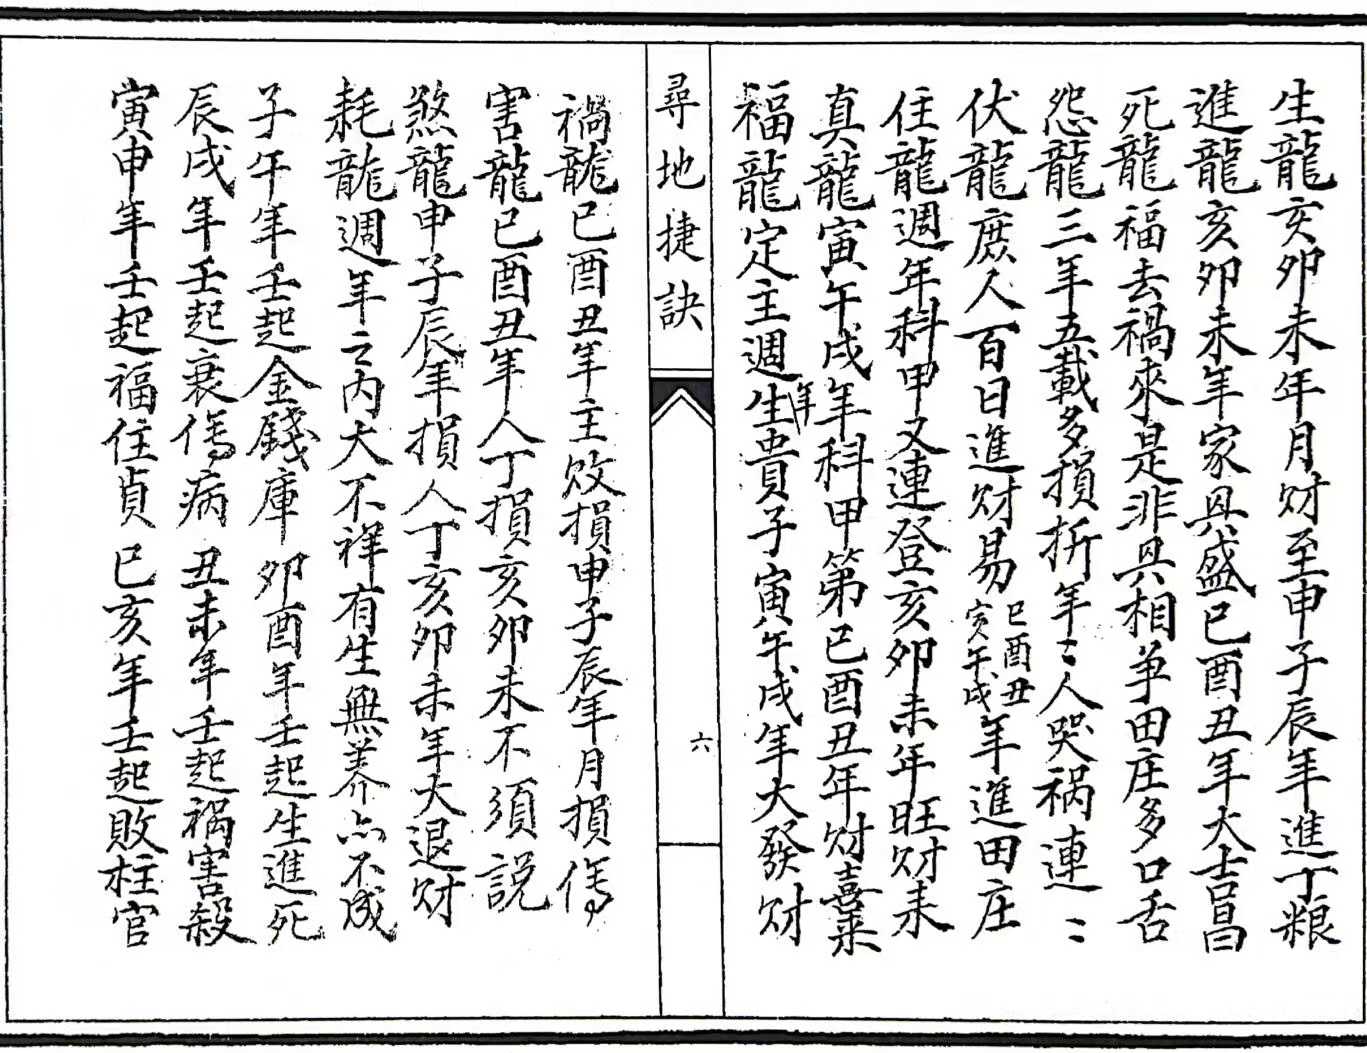 生龍亥卯未年月财至申子辰年進丁粮
進龍亥卯未年家具盛巳酉丑年大吉昌
死龍福去禍來是非具相爭田庄多口舌
怨龍三年五載多損折年〻人哭祸連〻
伏龍庶人百日進财易巳酉丑寅午戌年進田庄
住龍週年科甲又連登亥卯未年旺财来
真龍寅午戌年科甲第巳酉丑年财喜来
福龍定主週年生貴子寅午戌年大發财
尋地捷訣
六
禍龍巳酉丑年主敗損申子辰年月損傷
害龍巳酉丑年人丁損亥卯未不須説
煞龍申子辰年損人丁亥卯未年大退财
耗龍週年之内大不祥有生無养亦不成
子午年壬起金錢庫 卯酉年壬起生進死
辰戌年壬起衰傷病 丑未年壬起禍害殺
寅申年壬起福住貞 巳亥年壬起敗柱官